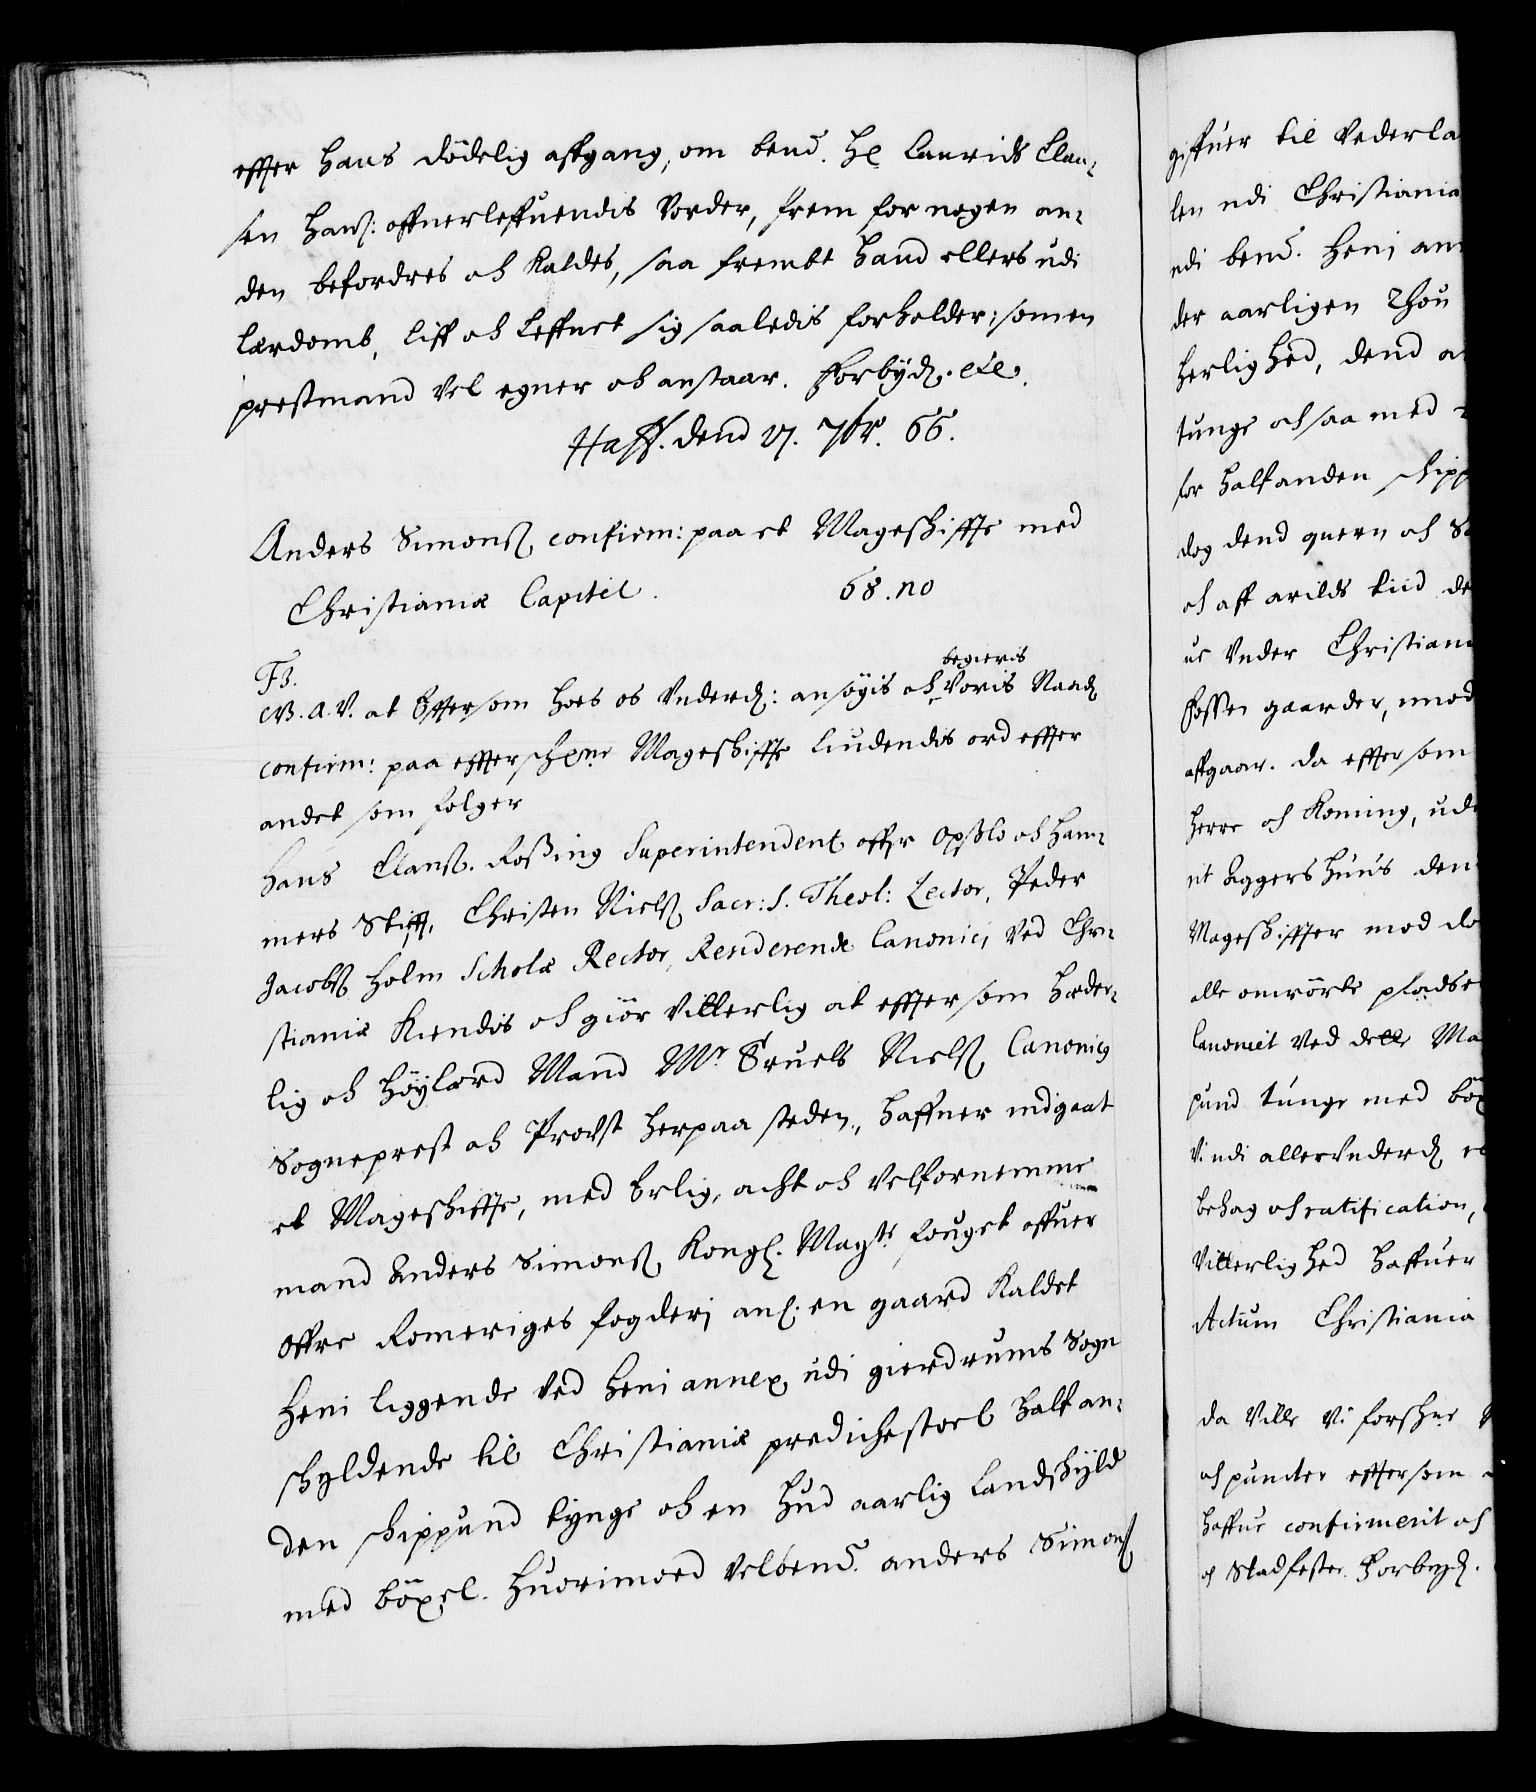 effter hans dödelig affgang, om bemd. Hr Laurids Clau¬
sen hans: offuerleffuendis vorder, frem for nogen an¬
den befordres och kaldes, saa frembt hand ellers udi
lærdomb, liff och leffnet sig saaledis forholder, som en
prestmand vel egner och anstaar. Forbyd. etc.
Haff. dend 21. 7br. 66.
Anders Simons. confirm: paa et Mageskiffte med
Christianiæ Capitel. 68. no
F3.
G. A. V. at Efftersom hoes os underd: ansögis och begieris voris Naad.
confirm: paa effterschrne Mageskiffte liudendis ord effter
andet som følger
Hans Clauss. Rosing Superintendent offr Opslo och Ham¬
mers Stifft, Christen Niels. Sacr: S. Theol: Lector, Peder
Jacobs. Holm Scholæ Rector, Residerende Canonici ved Chri¬
stianiæ kiendis och giör vitterlig at effter som Hæder¬
lig och Höylærd Mand Mr. Truels Niels. Canonicus
Sogneprest och Provst her paa steden, haffuer indgaat
et Mageskiffte, med Erlig, acht och velfornemme
mand Anders Simons. Kongl. Mayts. fouget offuer
Offre Romeriges fogderi anl. en gaard kaldet
Heni liggende ved Heni annex, udi Gierdrums Sogn
schyldende til Christianiæ predichestoel halfan¬
den schippund tynge och en hud aarlig Landskyld
med böxel. Huorimoed velbemd. Anders Simons.
giffuer til vederla
len udi Christiania
udi bemd. Heni an
der aarligen Thou
herlighed, dend a
tunge och saa med
for halfanden schipp
dog dend quern och S
och aff arilds tiid de
ue under Christian
Fossen gaarder, imod
affgaar. Da effter som
herre och Koning, ud
it Aggershuus den
Mageskiffter mod do
alle omrörte pladse
Canonicit ved dette Ma
pund tunge med böx
V. udi allerunderd.
behag och ratification,
Vitterlighed haffuer
Actum Christiania
Da ville vi forschne
och puncter effter som
haffue confirmerit och
och stadfester. Forbyd.